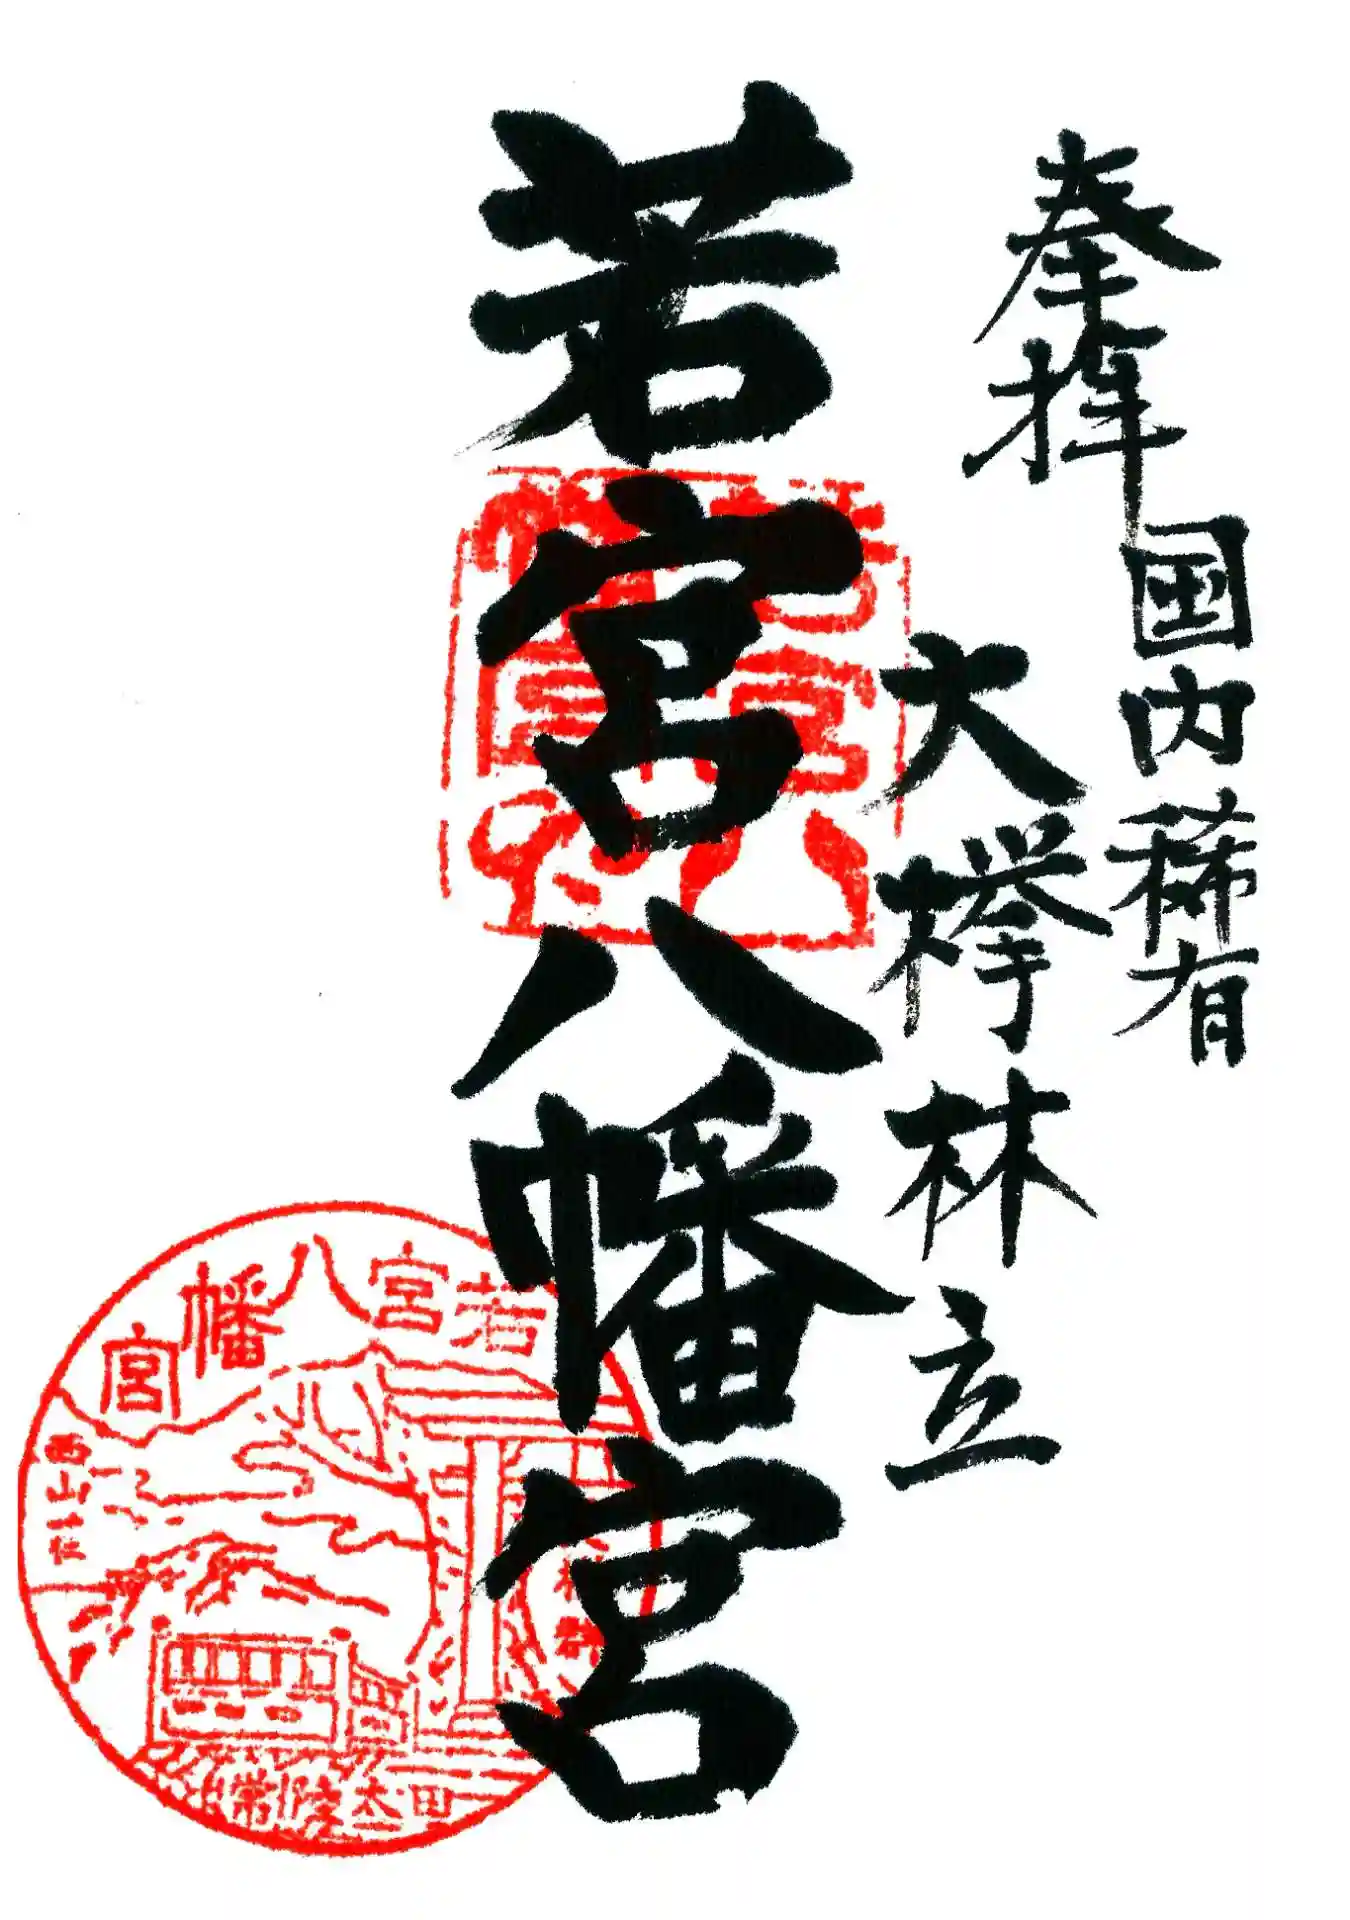 奉拝
国内稀有
大欅林立
若宮八幡宮
若宮八幡宮
西山荘
常陸太田